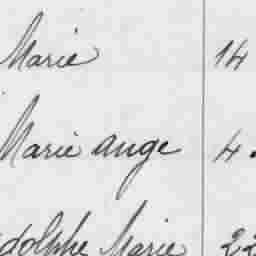 Marie 14
Marie ange 4.
dolphe Marie 22